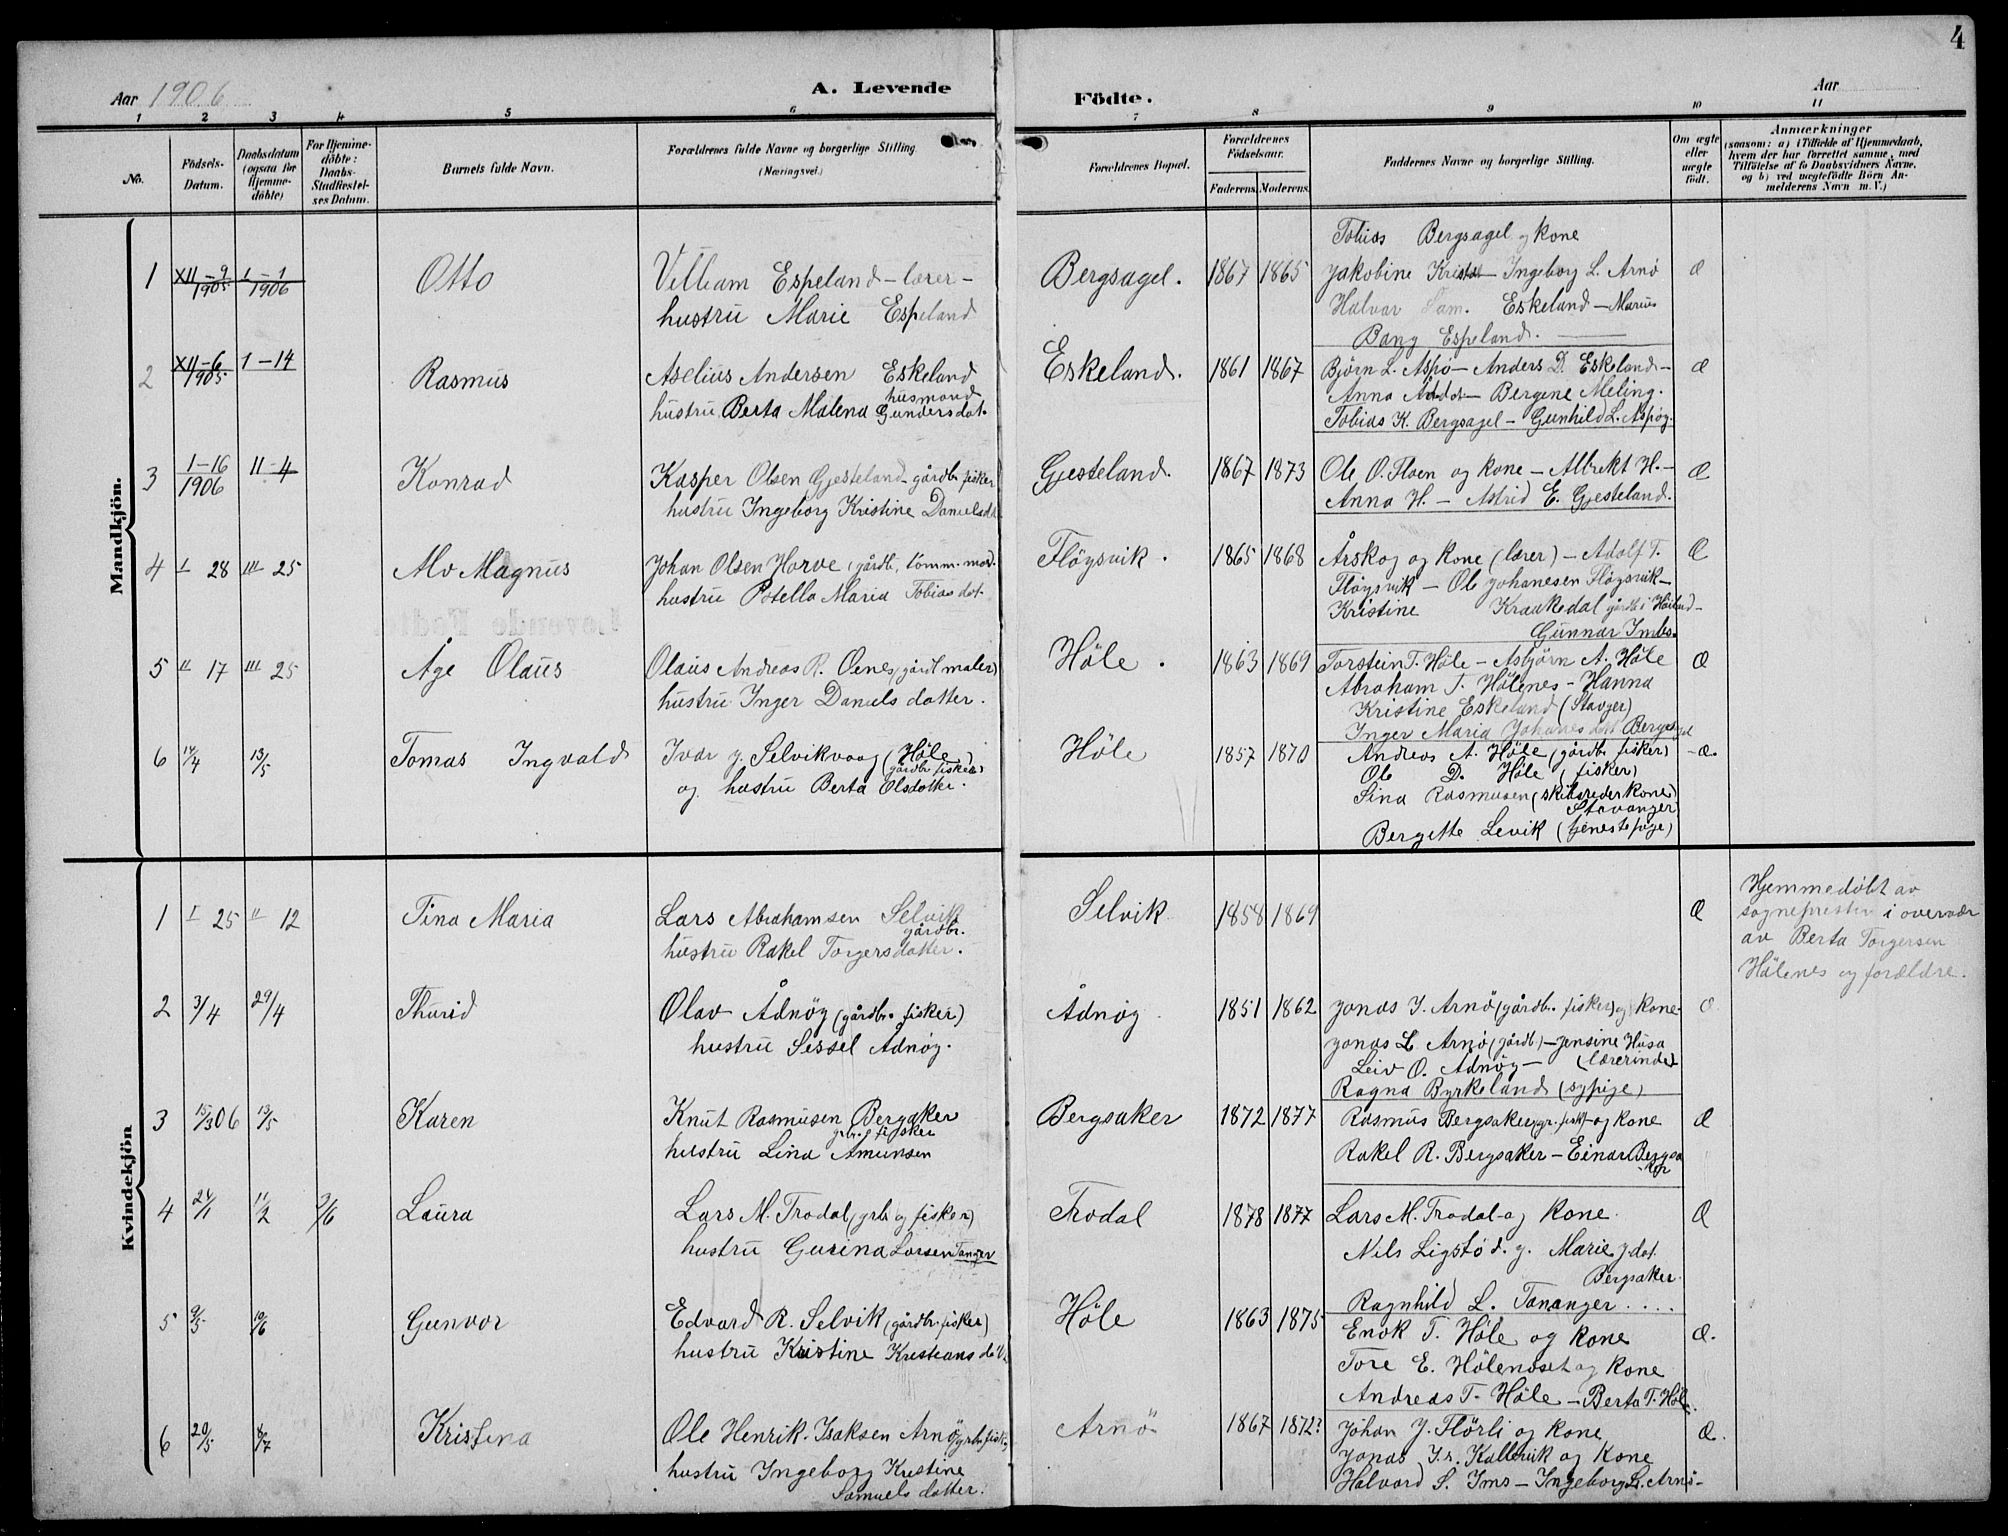 4
Aar 1906
A. Levende
Födte.
Aar
1 2 3 4 5 6 7 8 9 10 11
No.
Födsels-
Datum.
Daabsdatum
(ogsaa for
Hjemme-
döbte)
For Hjemme-
döbte:
Daabs-
Stadfæstel-
ses Datum.
Barnets fulde Navn.
Forældrenes fulde Navne og borgerlige Stilling
(Næringsvei.)
Forældrenes Bopæl.
Forældrenes
Födselsaar.
Faderens. Moderens.
Faddernes Navne og borgerlige Stilling.
Om ægte
eller
uægte
födt.
Anmærkninger
(saasom: a) i Tilfælde af Hjemmedaab,
hvem der har forrettet samme, med
Tilföielse af to Daabsvidners Navne,
og b) ved uægtefödte Börn An-
melderens Navn m. V.)
Mandkjön.
1 XII-9 1905 1-1 1906 Otto
Villiam Espeland - lærer -
hustru Marie Espeland
Bergsagel. 1867 1865
Tobias Bergsagel og kone
Jakobine - Ingeborg L. Arnö
Halvar Sam. Eskeland - Marius
Bang Espeland.
Æ
2 XII-6 1905 1-14 Rasmus
Aselius Andersen Eskeland
husmand
hustru Berta Malena Gundersdat.
Eskeland. 1861 1867
Bjørn L. Aspø - Anders D. Eskeland -
Anna - Bergene Meling.
Tobias K. Bergsagel - Gunhild L. Aspøy.
Æ
3 1-16 1906 II-4 Konrad
Kasper Olsen Gjesteland - gårdbr. fisker
hustru Ingeborg Kristine Danielsd.
Gjesteland. 1867 1873
Ole O. Floen og kone - Albrekt H. -
Anna H. - Astrid E. Gjesteland.
Æ
4 I 28 III 25 Alv Magnus
Johan Olsen Horve (gårdb., tömm.mand.
hustru Potella Maria Tobiasdat.
Fløysvik. 1865 1868
Årskog og kone (lærer) - Adolf T.
Fløysvik - Ole Johanesen Fløysvik -
Kristine Kraakedal gårdb. i Høiland -
Gunnar Imbs.
Æ
5 II 17 III 25 Åge Olaus
Olaus Andreas R. Oenes (gårdb. maler)
hustru Inger Daniels datter.
Höle. 1863 1869
Torstein T. Höle - Asbjörn A. Höle
Abraham T. Hölenes - Hanna
Kristine Eskeland (Stavger)
Inger Maria Johannesdat. Bergsagel
Æ
6 14/4 13/5 Tomas Ingvald
Ivar J. Selvikvaag (Höle
gårdbr. fisker)
og hustru Berta Olsdatter.
Höle 1857 1870
Andreas A. Höle (gårdbr. fisker)
Ole D. Höle (fisker)
Sina Rasmusen (skibsrederkone)
Stavanger
Bergitte Levik (tjenestepige)
Æ.
Kvindekjön
1 I 25 II 12 Tina Maria
Lars Abrahamsen Selvik
gårdbr.
hustru Rakel Torgersdatter.
Selvik 1858 1869
Æ
Hjemmedöbt av
sognepresten i overvær
av Berta Torgersen
Hölenes og forældre.
2 3/4 29/4 Thurid
Olav Ådnöy (gårdbr. fisker)
hustru Sessel Ådnöy.
Ådnöy 1851 1862
Jonas J. Arnö (gårdbr. fisker) og kone.
Jonas L. Arnö (gårdb) - Jensine Husa
Leiv O. Adnöy - (lærerinde)
Ragna Byrkeland (sypige)
Æ
3 15/3 06 13/5 Karen
Knut Rasmusen Bergsaker
grbr. fisker
hustru Lina Amunsen
Bergsaker 1872 1877
Rasmus Bergsaker gr. fisk. og kone
Rakel R. Bergsaker - Einar Bergsa
ker
Æ
4 24/1 11/2 /6 Laura
Lars M. Trodal (grb. og fisker)
hustru Gurina Larsen Tanger
Trodal 1878 1877
Lars M. Trodal og kone.
Nils Ligstö d. y. Marie J dat.
Bergsaker.
Ragnhild L. Tananger....
Æ
5 9/5 10/6 Gunvor
Edvard R. Selvik (gårdbr. fisker)
hustru Kristine Kristians dat.
Höle 1863 1875
Enok T. Höle og kone
Tore E. Hölenoset og kone
Andreas T. Höle - Berta T. Höle.
Æ.
6 20/5 8/7 Kristina
Ole Henrik Isaksen Arnö grb. fisk.
hustru Ingeborg Kristine
Samuels datter.
Arnö 1867 1872?
Johan J. Flörli og kone
Jonas Kallevik og kone
Halvard S. Ims - Ingeborg L. Arnö -
Æ.